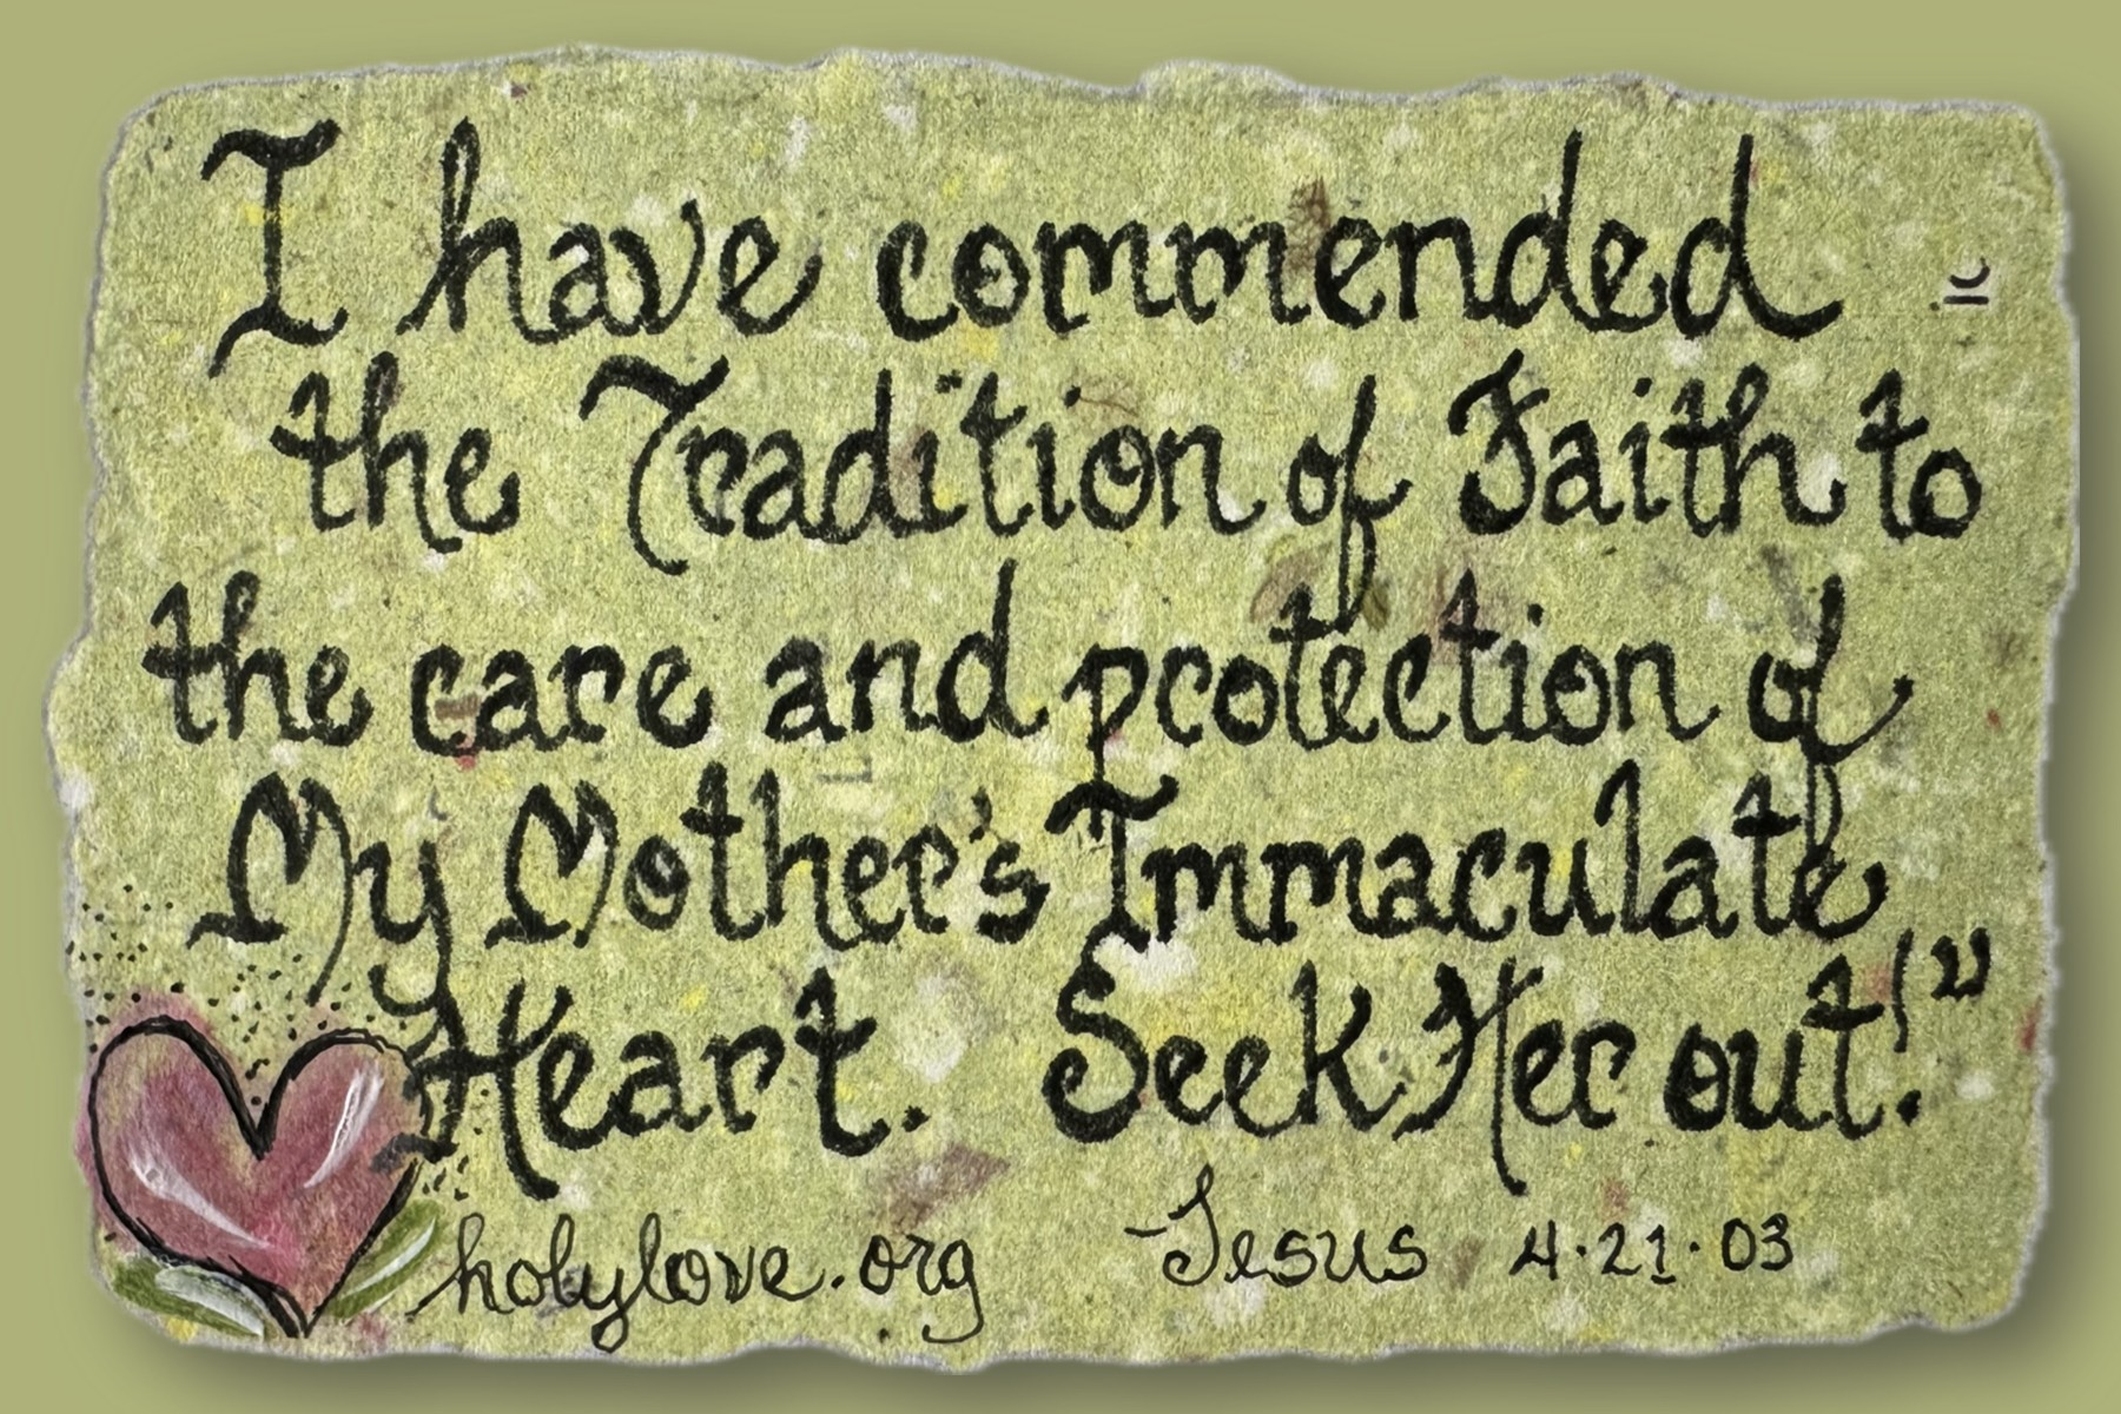 I have commended
the Tradition of Faith to
the care and protection of
My Mother's Immaculate
Heart. Seek Her out!"
holylove.org -Jesus 4.21.03